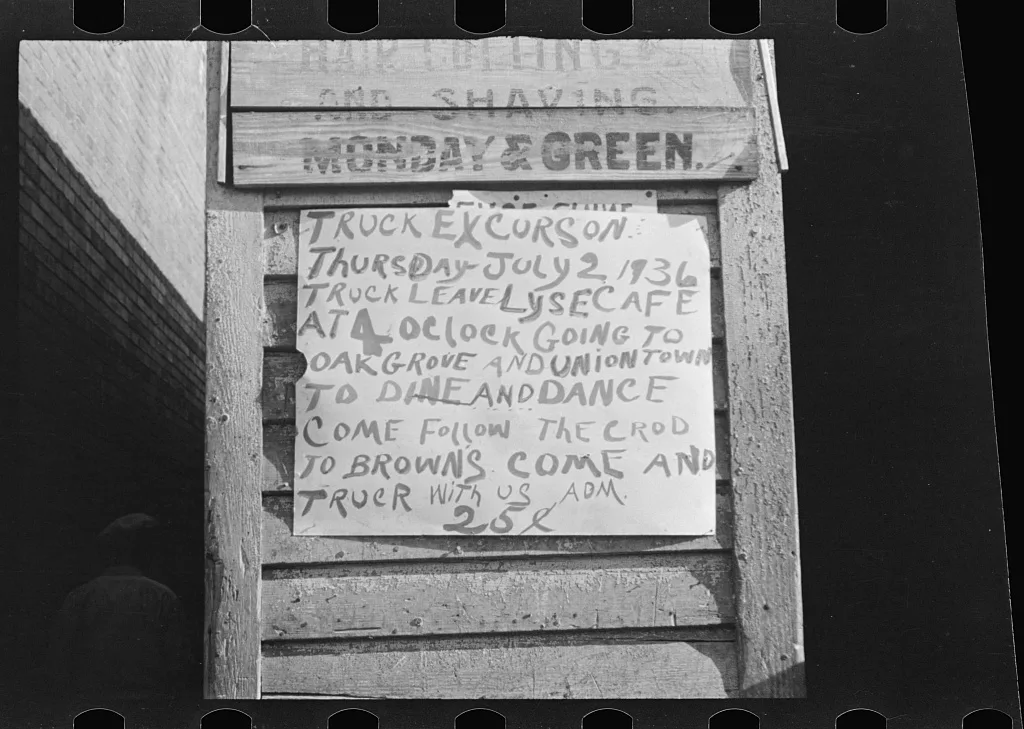 HAIR CUTTING
AND SHAVING
MONDAY & GREEN.
TRUCK EXCURSON.
THURSDAY-JULY 2 1936
TRUCK LEAVE LYSE CAFE
AT 4 OCLOCK GOING TO
OAK GROVE AND UNIONTOWN
TO DINE AND DANCE
COME FOLLOW THE CROD
TO BROWN'S COME AND
TRUCR WITH US ADM.
25¢